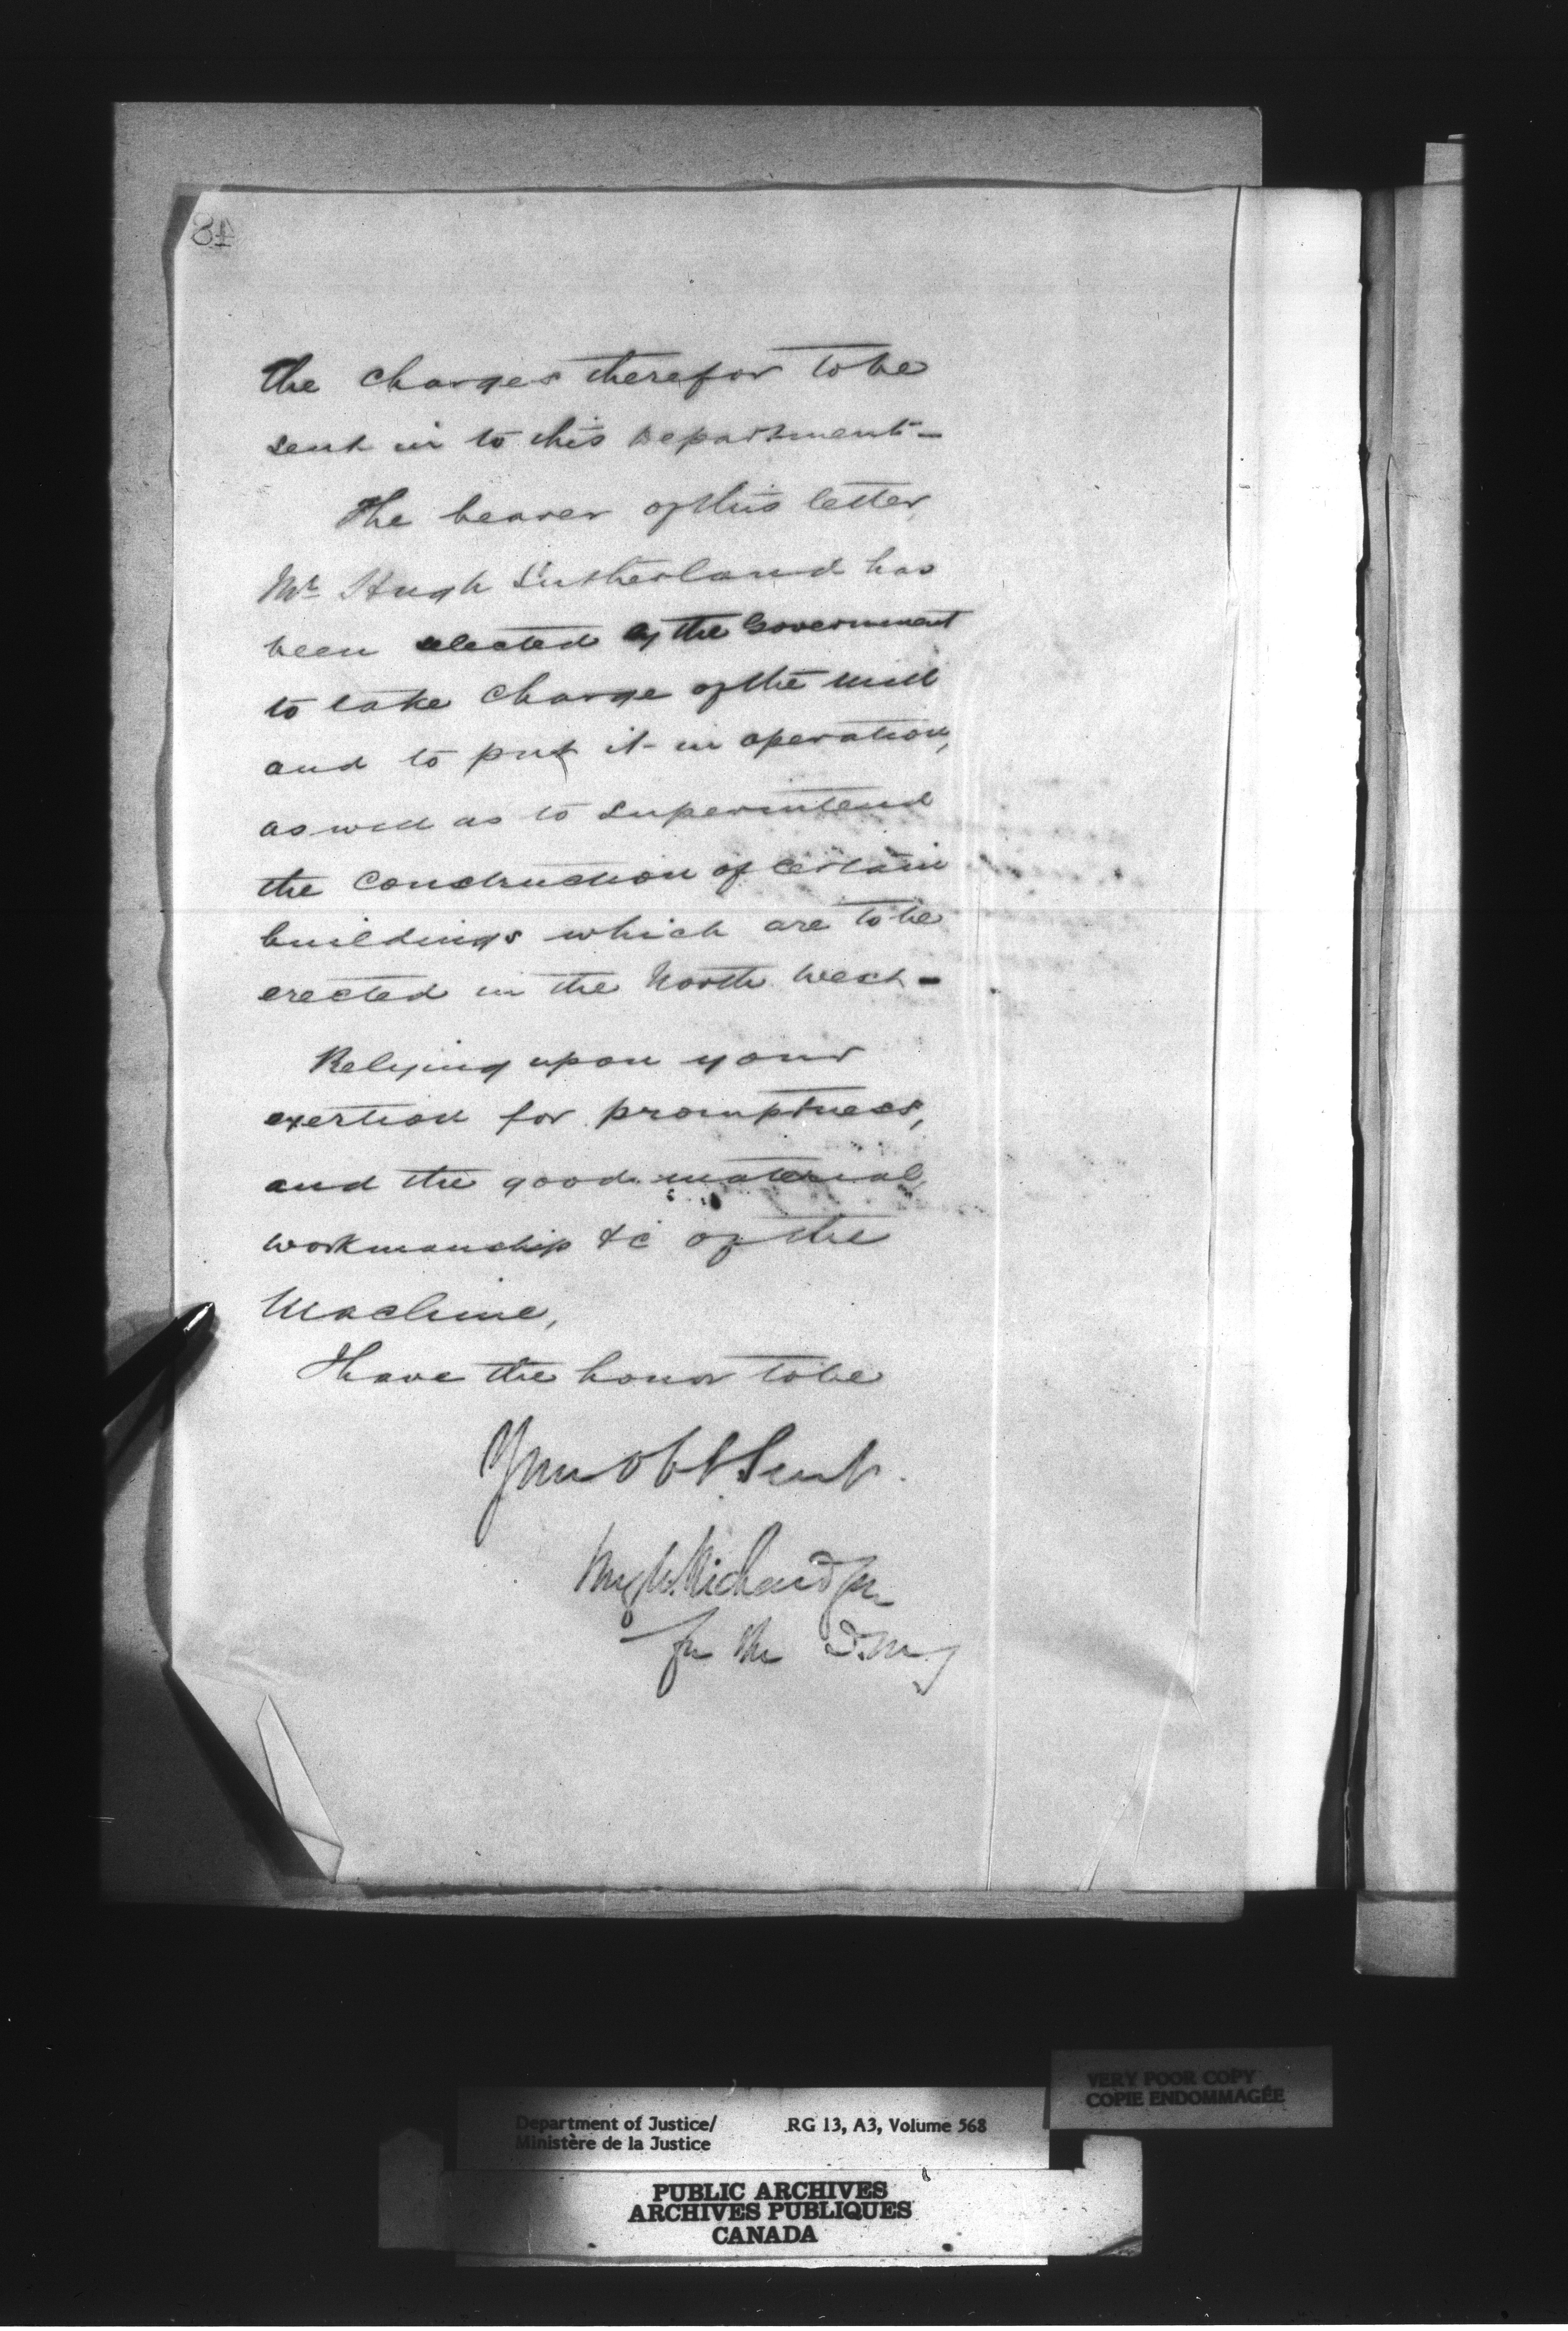 48
the charges therefor to be
sent in to this Department -
The bearer of this letter
Mr Hugh Sutherland has
been selected by the Government
to take charge of the mill
and to put it in operation,
as well as to superintend
the construction of certain
buildings which are to be
erected in the North West -
Relying upon your
exertion for promptness,
and the good material,
workmanship &c of the
Machine,
I have the honor to be
Your obt Servt.
Hugh Richardson
for the D.M.J
VERY POOR COPY
COPIE ENDOMMAGÉE
Department of Justice/ RG 13, A3, Volume 568
Ministère de la Justice
PUBLIC ARCHIVES
ARCHIVES PUBLIQUES
CANADA